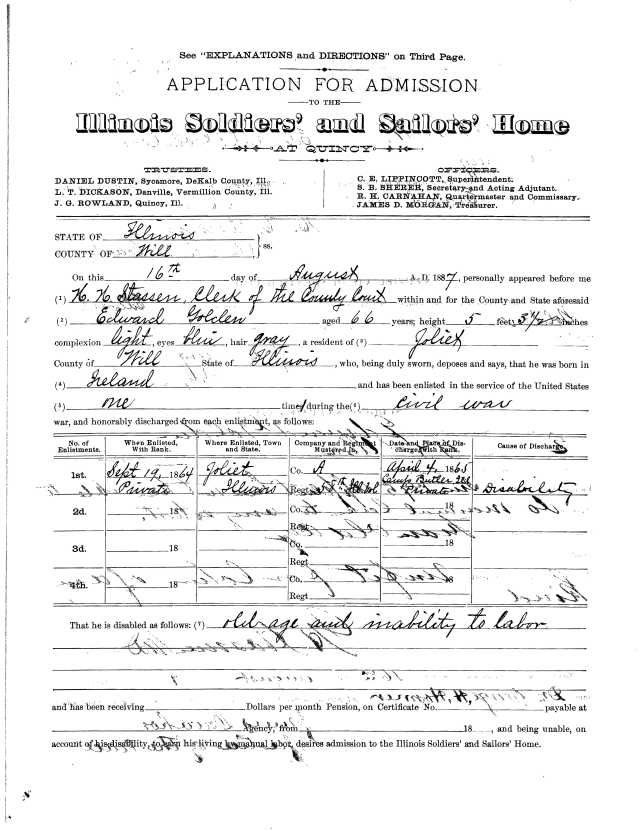 See "EXPLANATIONS and DIRECTIONS" on Third Page.
APPLICATION FOR ADMISSION
TO THE
Illinois Soldiers' and Sailors' Home
AT QUINCY
TRUSTEES.
DANIEL DUSTIN, Sycamore, DeKalb County, Ill.
L. T. DICKASON, Danville, Vermillion County, Ill.
J. G. ROWLAND, Quincy, Ill.
OFFICERS.
C. E. LIPPINCOTT, Superintendent.
S. B. SHERER, Secretary and Acting Adjutant.
R. H. CARNAHAN, Quartermaster and Commissary.
JAMES D. MORGAN, Treasurer.
STATE OF Illinois
COUNTY OF Will } ss.
On this 16th day of August A. D. 1887, personally appeared before me
(1) H. H. Stassen, Clerk of the County Court within and for the County and State aforesaid
(2) Edward Golden aged 66 years; height 5 feet 3 1/2 inches
complexion light, eyes blue, hair gray, a resident of (3) Joliet
County of Will State of Illinois, who, being duly sworn, deposes and says, that he was born in
(4) Ireland and has been enlisted in the service of the United States
(5) one time during the (6) Civil war
war, and honorably discharged from each enlistment, as follows:
No. of Enlistments. When Enlisted, With Rank. Where Enlisted, Town and State. Company and Regiment Mustered In. Date and Place of Discharge With Rank. Cause of Discharge
1st. Sept 19, 1864 Joliet Co. A April 4, 1865
Private Illinois Regt Ill Vol Camp Butler Ills Private Disability
2d. 18 Co. 18
Regt
3d. 18 Co. 18
Regt
4th. 18 Co. 18
Regt
That he is disabled as follows: (7) old age and inability to labor
and has been receiving Dollars per month Pension, on Certificate No. payable at
Agency, from 18 , and being unable, on
account of his disability, to earn his living by manual labor, desires admission to the Illinois Soldiers' and Sailors' Home.